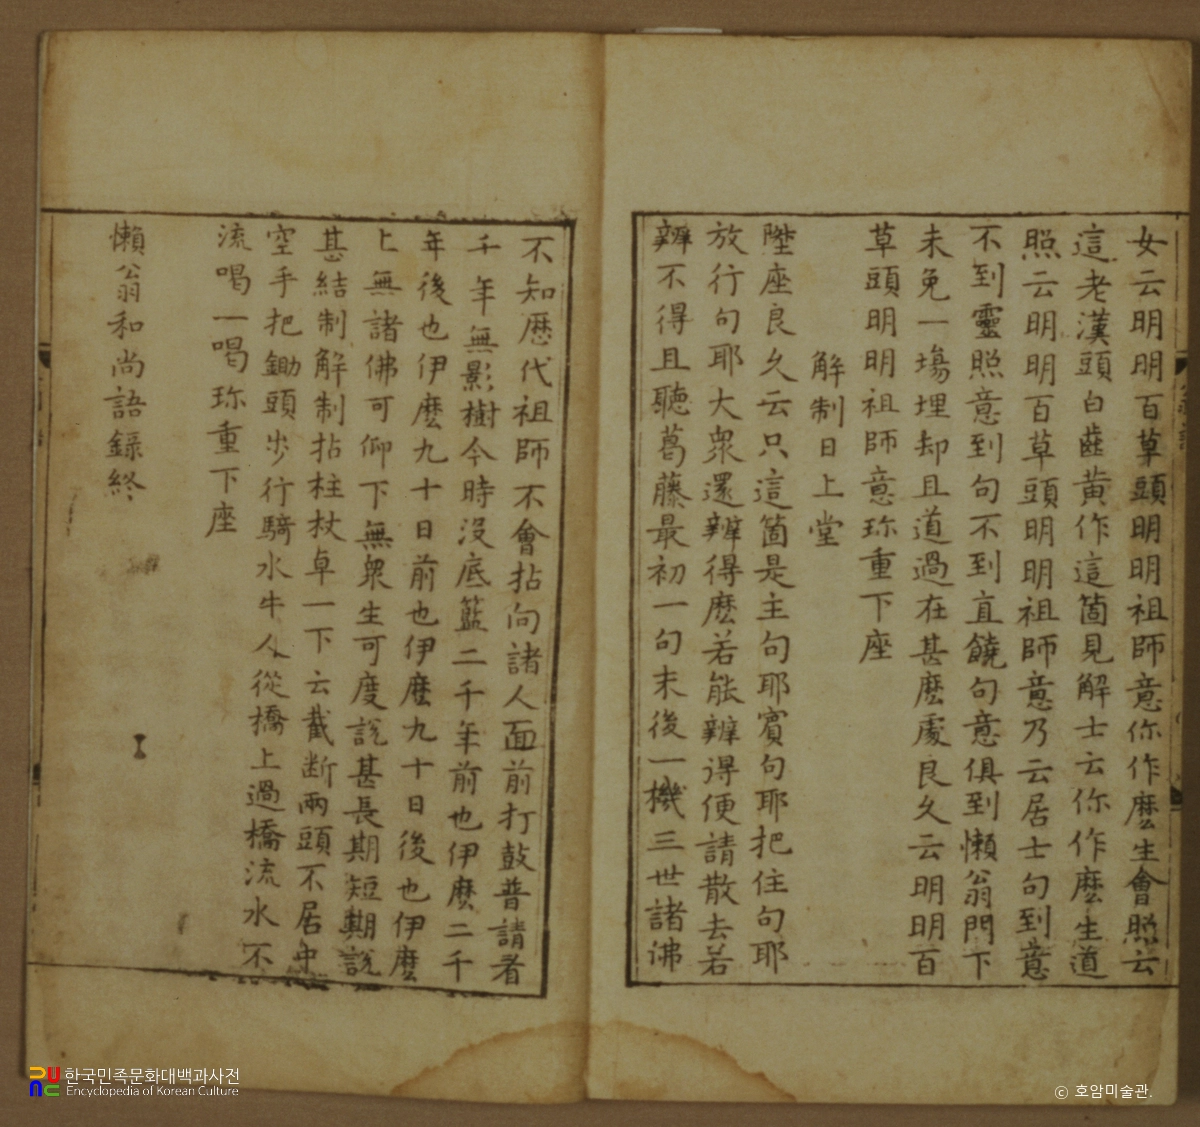 女云明明百草頭明明祖師意你作麽生會照云
這老漢頭白齒黄作這箇見解士云你作麽生道
照云明明百草頭明明祖師意乃云居士句到意
不到靈照意到句不到直饒句意俱到懶翁門下
未免一塲埋却且道過在甚麽處良久云明明百
草頭明明祖師意珎重下座
解制日上堂
陞座良久云只這箇是主句耶賔句耶把住句耶
放行句耶大衆還辨得麽若能辨得便請散去若
辨不得且聽葛藤最初一句末後一機三世諸佛
不知歷代祖師不會拈向諸人面前打鼓普請看
千年無影樹今時沒底籃二千年前也伊麽二千
年後也伊麽九十日前也伊麽九十日後也伊麽
上無諸佛可仰下無衆生可度說甚長期短期說
甚結制解制拈柱杖卓一下云截断兩頭不居中
空手把鋤頭步行騎水牛人從橋上過橋流水不
流喝一喝珎重下座
懶翁和尚語錄終
한국민족문화대백과사전
Encyclopedia of Korean Culture
ⓒ 호암미술관.